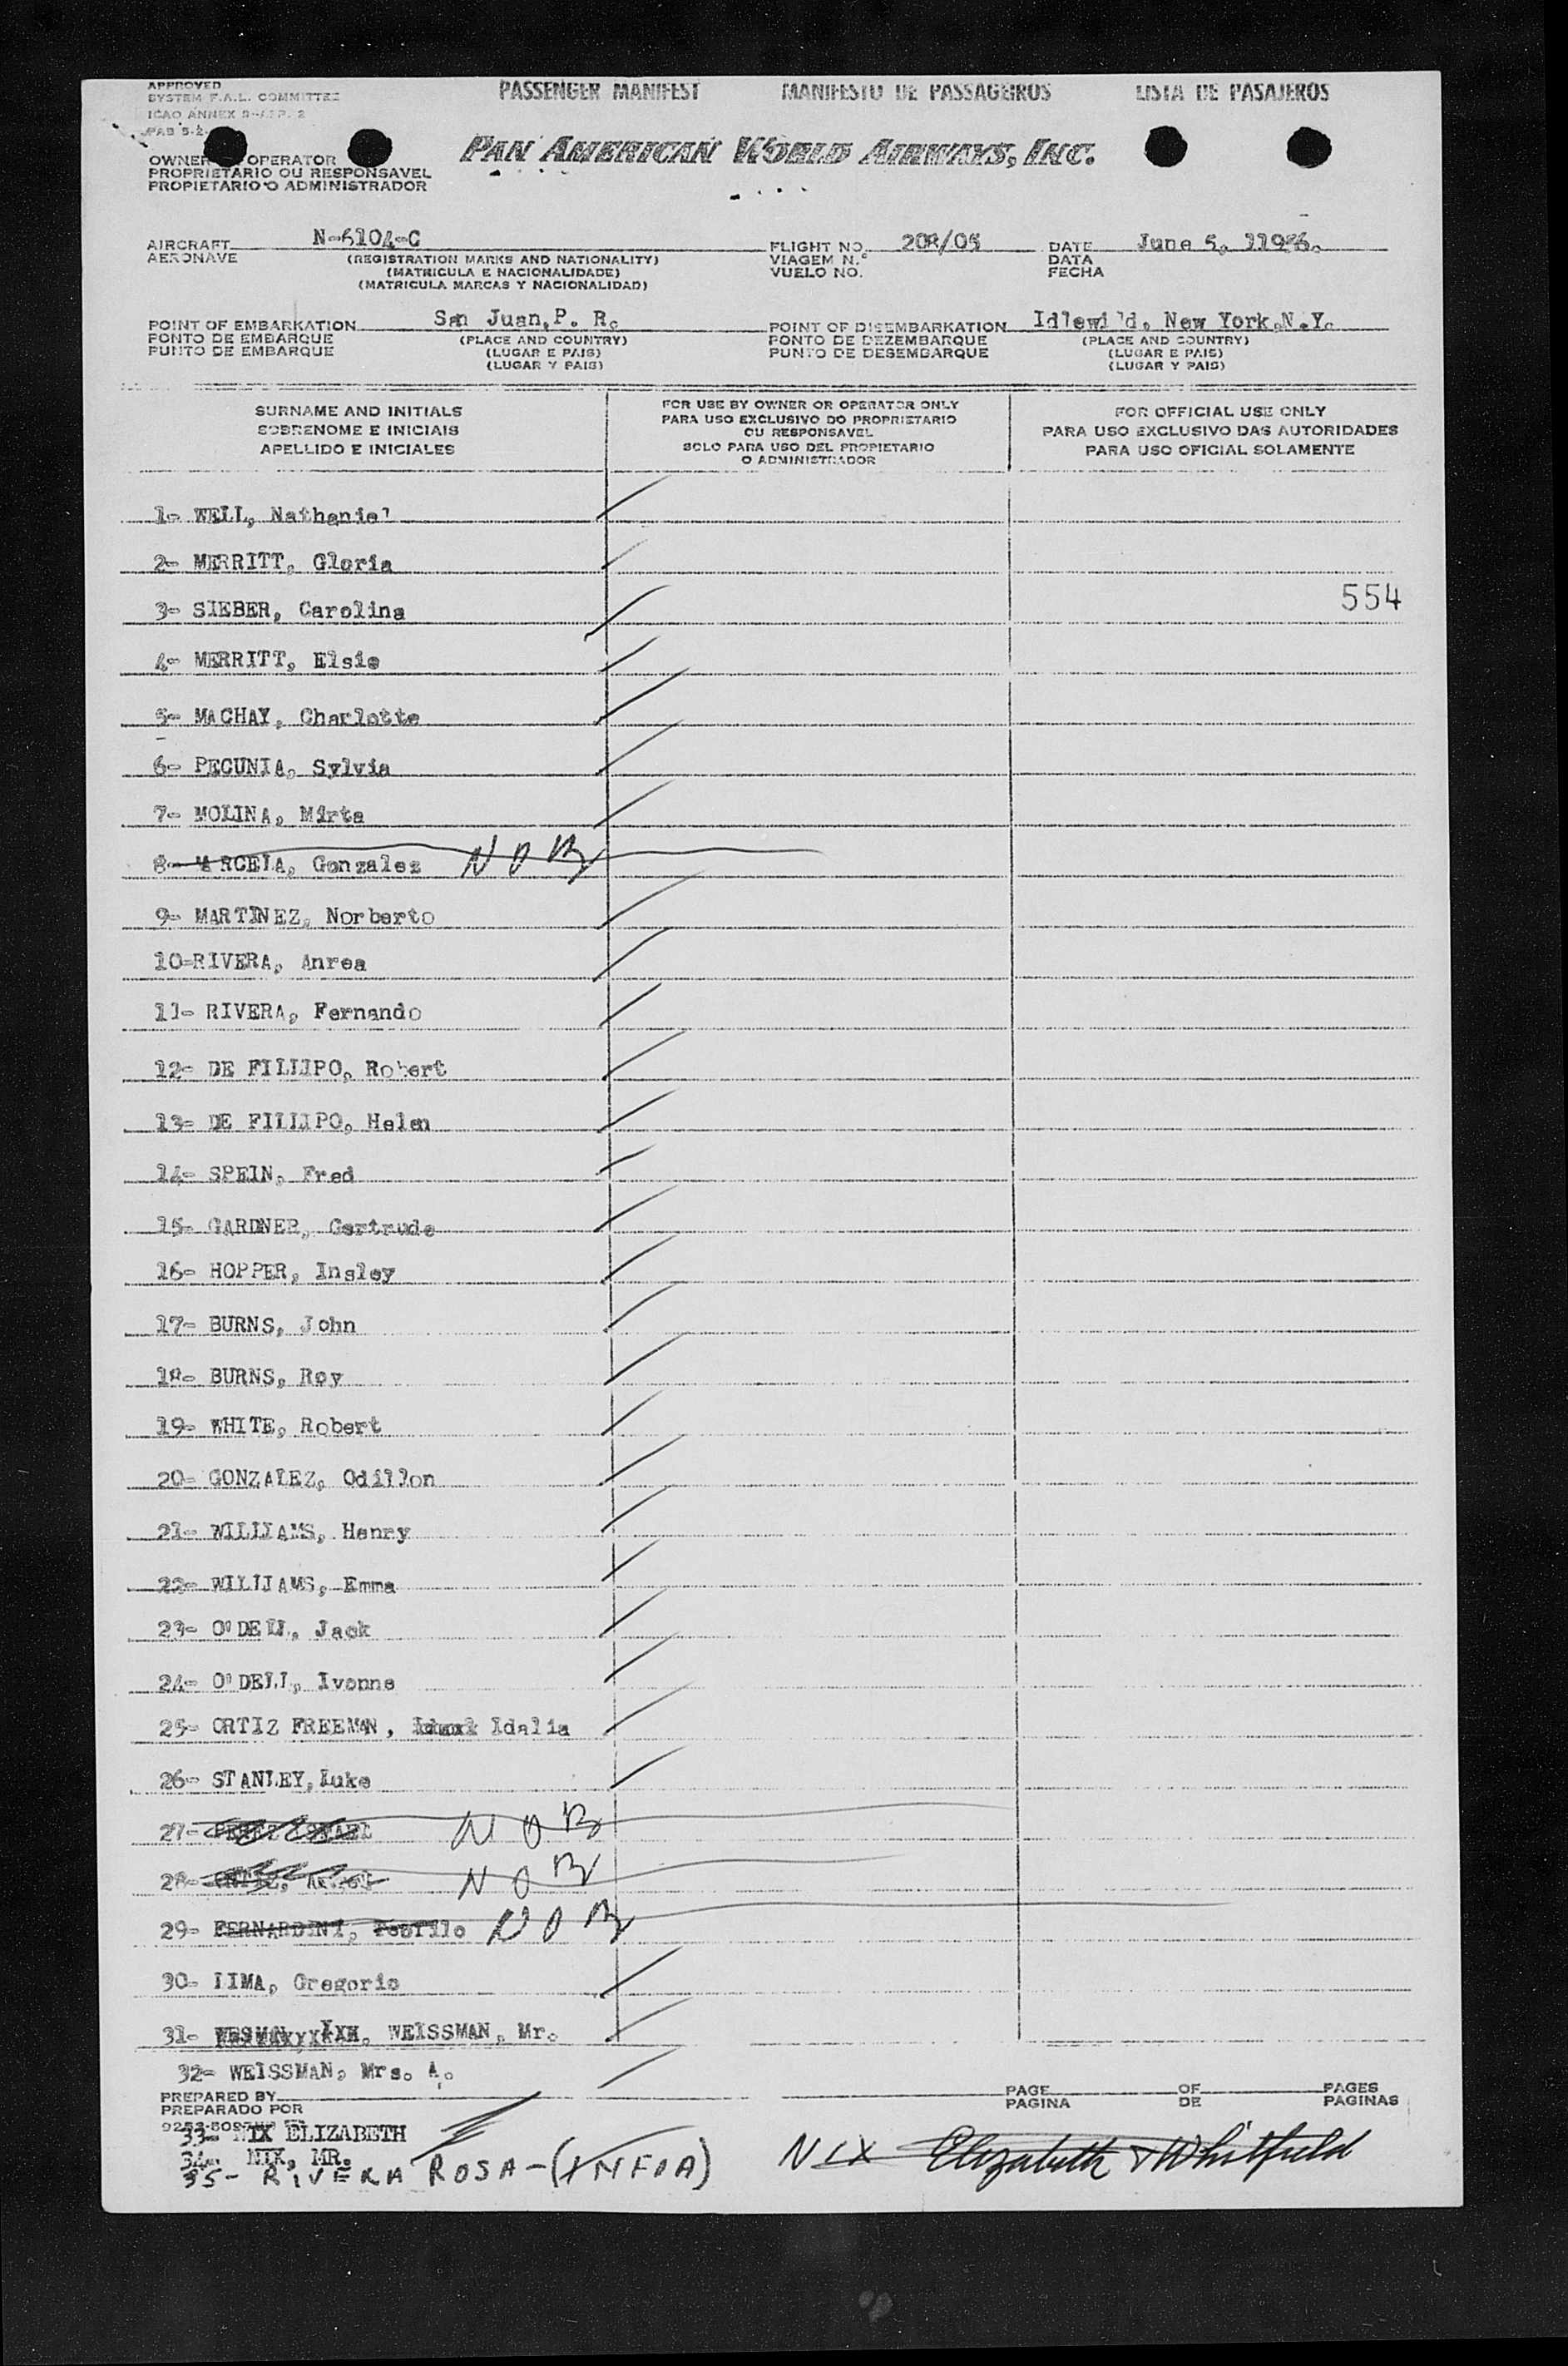 APPROVED
SYSTEM F.A.L. COMMITTEE
ICAO ANNEX 9-APP. 2
PASSENGER MANIFEST MANIFESTO DE PASSAGEIROS LISTA DE PASAJEROS
PAN AMERICAN WORLD AIRWAYS, INC.
OWNER OPERATOR
PROPRIETARIO OU RESPONSAVEL
PROPIETARIO O ADMINISTRADOR
AIRCRAFT N-6104-C FLIGHT NO. 208/05 DATE June 5,
AERONAVE (REGISTRATION MARKS AND NATIONALITY) VIAGEM N.º DATA
(MATRICULA E NACIONALIDADE) VUELO NO. FECHA
(MATRICULA MARCAS Y NACIONALIDAD)
POINT OF EMBARKATION San Juan, P. R. POINT OF DISEMBARKATION Idlewild, New York, N.Y.
PONTO DE EMBARQUE (PLACE AND COUNTRY) PONTO DE DEZEMBARQUE (PLACE AND COUNTRY)
PUNTO DE EMBARQUE (LUGAR E PAIS) PUNTO DE DESEMBARQUE (LUGAR E PAIS)
(LUGAR Y PAIS) (LUGAR Y PAIS)
SURNAME AND INITIALS FOR USE BY OWNER OR OPERATOR ONLY FOR OFFICIAL USE ONLY
SOBRENOME E INICIAIS PARA USO EXCLUSIVO DO PROPRIETARIO PARA USO EXCLUSIVO DAS AUTORIDADES
OU RESPONSAVEL
APELLIDO E INICIALES SOLO PARA USO DEL PROPIETARIO PARA USO OFICIAL SOLAMENTE
O ADMINISTRADOR
1- WELL, Nathaniel
2- MERRITT, Gloria
554
3- SIEBER, Carolina
4- MERRITT, Elsie
5- MACHAY, Charlotte
6- PECUNIA, Sylvia
7- MOLINA, Mirta
8- MARCELA, Gonzalez NOB
9- MARTINEZ, Norberto
10-RIVERA, Anrea
11- RIVERA, Fernando
12- DE FILLIPO, Robert
13- DE FILLIPO, Helen
14- SPEIN, Fred
15- GARDNER, Gertrude
16- HOPPER, Insley
17- BURNS, John
18- BURNS, Roy
19- WHITE, Robert
20- GONZALEZ, Odillon
21- WILLIAMS, Henry
22- WILLIAMS, Emma
23- O'DELL, Jack
24- O'DELL, Ivonne
25- ORTIZ FREEMAN, Idalia
26- STANLEY, Luke
27- NOB
28- NOB
29- BERNARDINI, NOB
30- LIMA, Gregorio
31- WEISSMAN, Mr.
32- WEISSMAN, Mrs. A.
PREPARED BY PAGE OF PAGES
PREPARADO POR PAGINA DE PAGINAS
33- NIX ELIZABETH
34- NIX, MR.
35- RIVERA ROSA-(INFOA) NIX Elizabeth & Whitfield